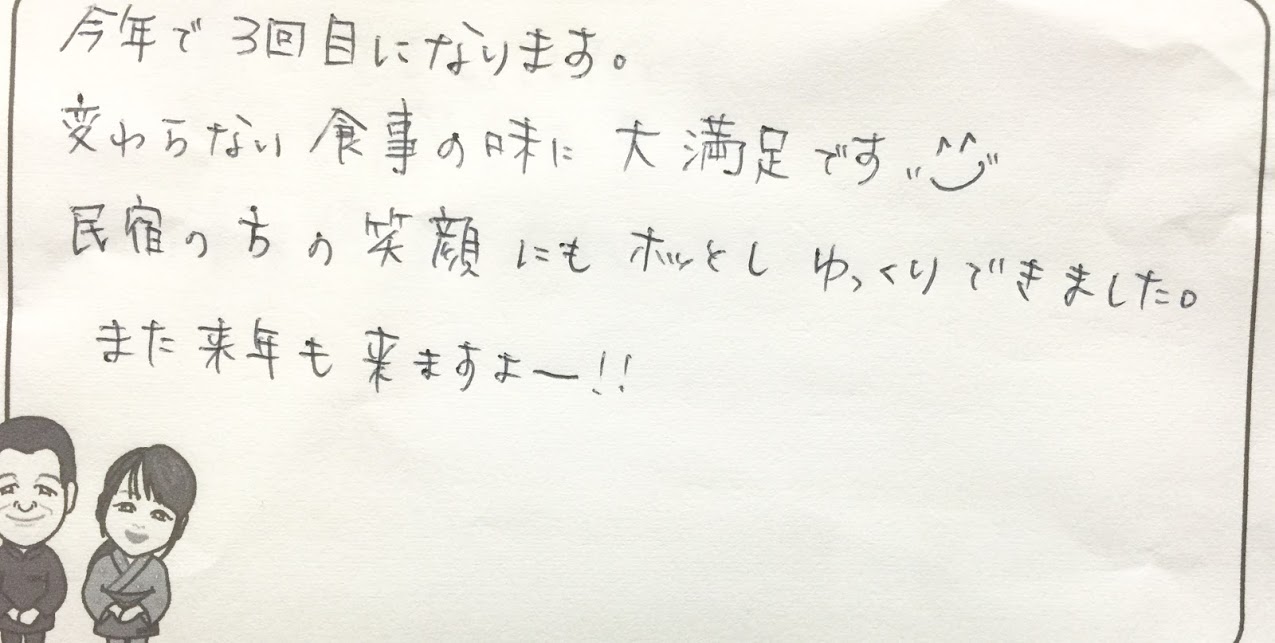 今年で3回目になります。
変わらない食事の味に大満足です
民宿の方の笑顔にもホッとしゆっくりできました。
また来年も来ますよー!!